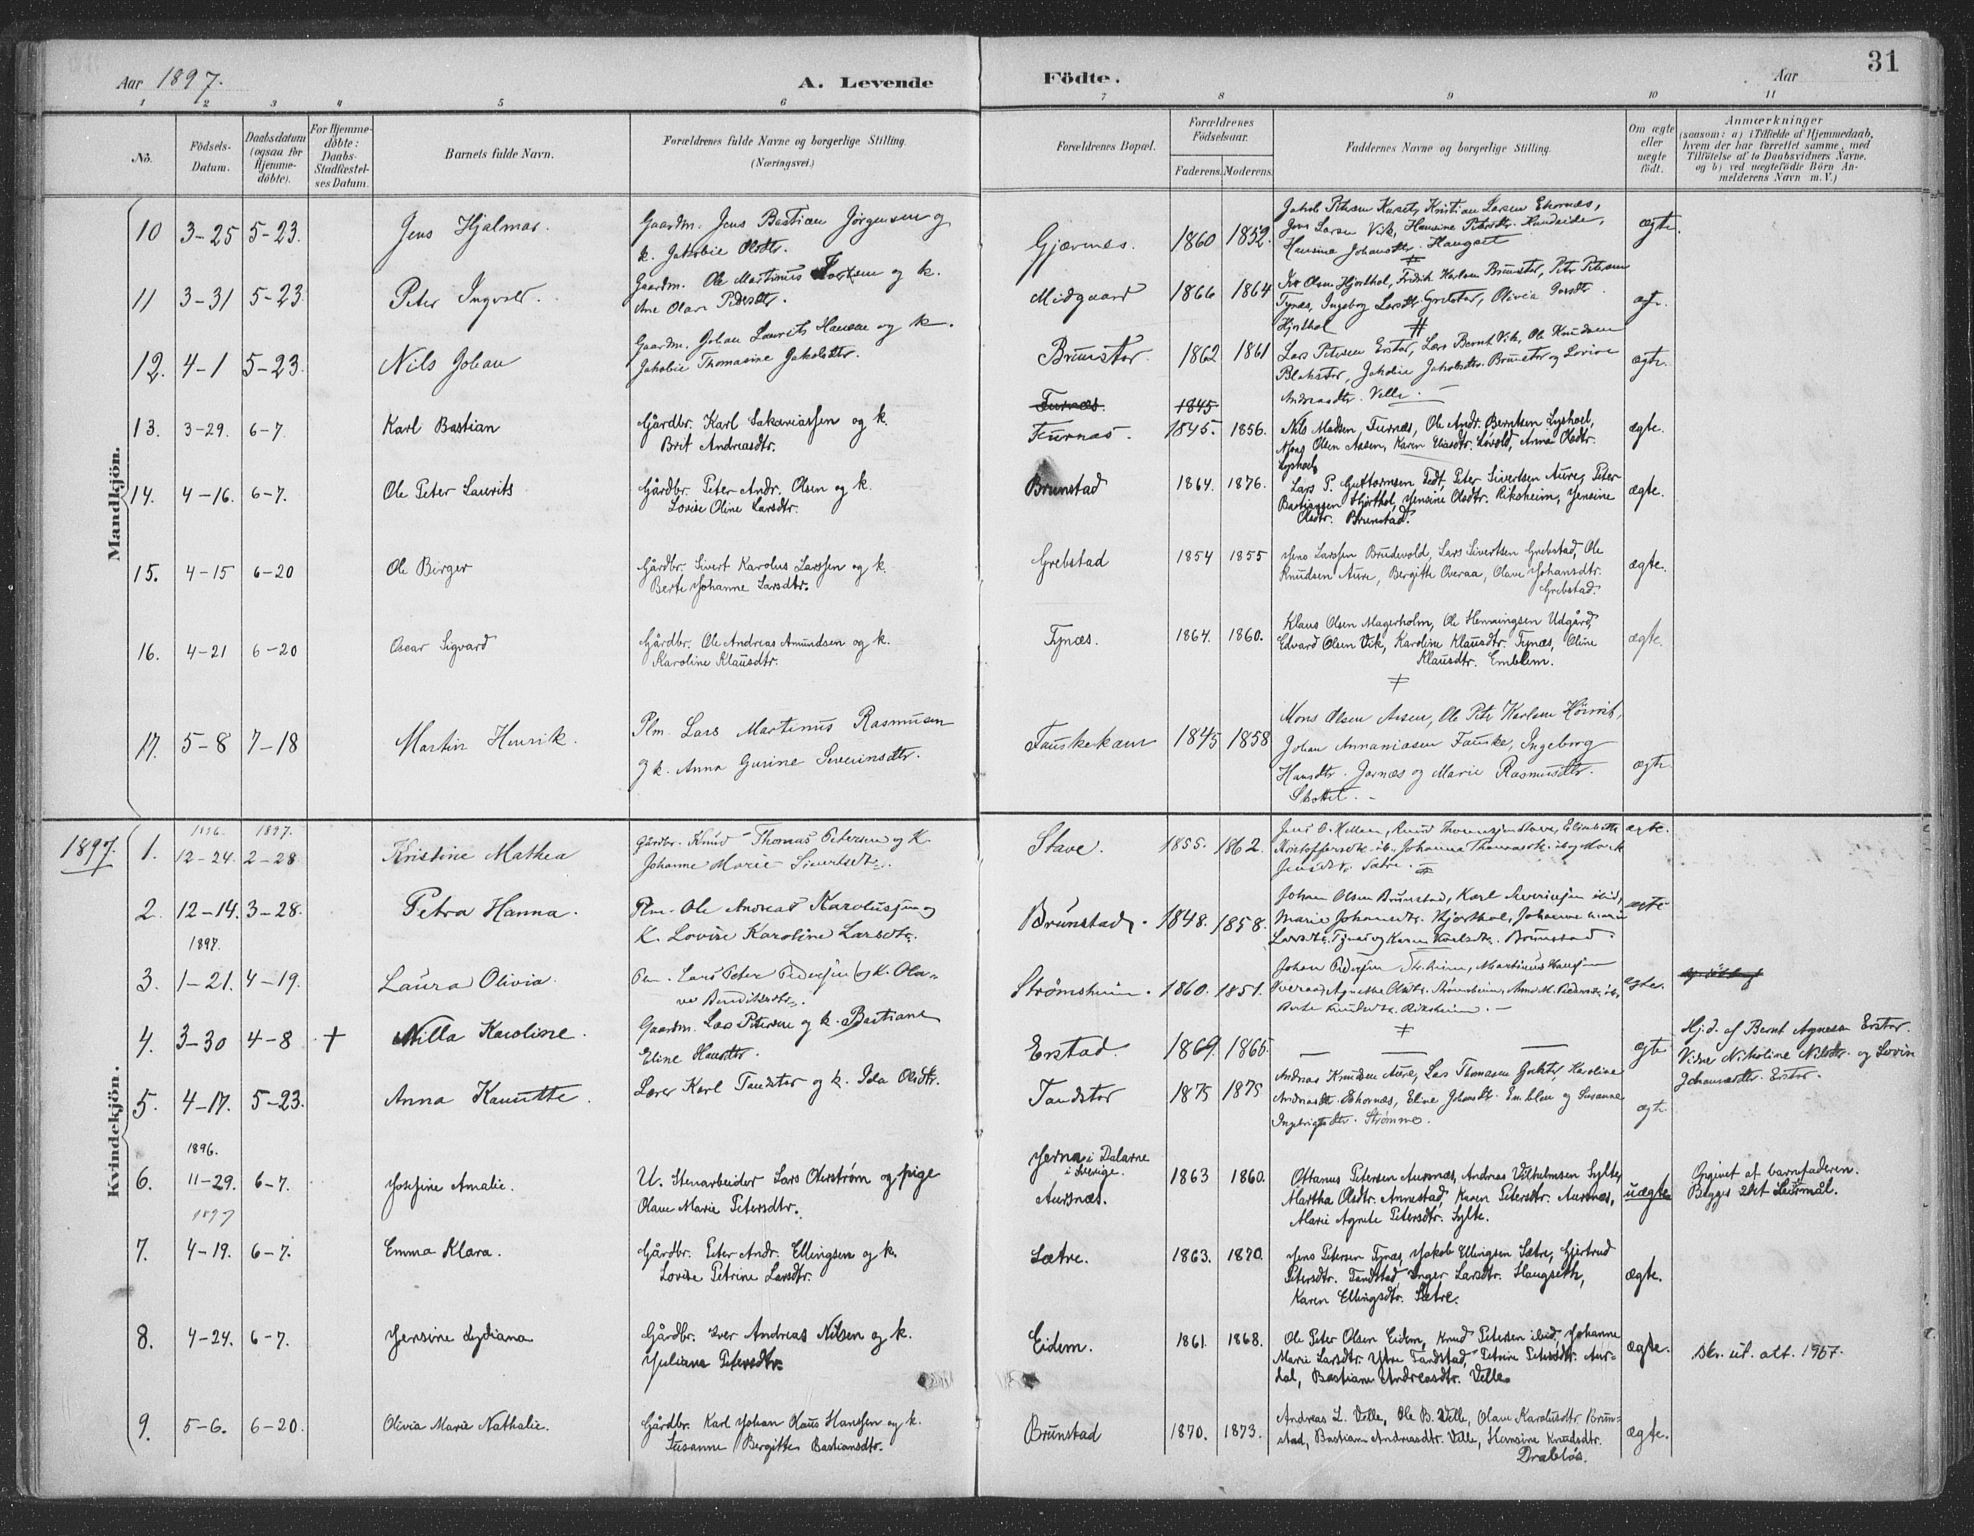 Aar 1897.
A. Levende Födte.
Aar
31
1 2 3 4 5 6 7 8 9 10 11
No.
Födsels-
Datum.
Daabsdatum
(ogsaa for
Hjemme-
döbte).
For Hjemme-
döbte:
Daabs-
Stadfæstel-
ses Datum.
Barnets fulde Navn.
Forældrenes fulde Navne og borgerlige Stilling.
(Næringsvei.)
Forældrenes Bopæl.
Forældrenes
Födselsaar.
Faderens. Moderens.
Faddernes Navne og borgerlige Stilling.
Om ægte
eller
uægte
födt.
Anmærkninger
(saasom: a) i Tilfælde af Hjemmedaab,
hvem der har forrettet samme, med
Tilföielse af to Daabsvidners Navne,
og b) ved uægtefödte Börn An-
melderens Navn m. V.)
Mandkjön.
10 3-25 5-23. Jens Hjalmar.
Gaardm. Jens Bastian Jørgensen og
k. Jakobie Olsdtr.
Gjævenes. 1860 1852.
Jakob Petersen Kurset, Kristian Larsen Ekornes,
Jens Larsen Vik, Hansine Petersdtr. Hundeide,
Hansine Johansdtr. Haugset
ægte.
11 3-31 5-23. Peter Ingvald.
Gaardm. Ole Martinus Iversen og k.
Ane Olave Pedersdtr.
Midgaard 1866 1864
Iver Olsen Hjorthol, Fredrik Karlsen Brunstor, Peter Petersen
Tynæs, Ingeborg Larsdtr. Grebstor, Olivia
Hjorthol
ægte.
12. 4-1 5-23. Nils Johan
Gaardm. Johan Laurits Hansen og k.
Jakobie Thomasine Jakobsdtr.
Brunstor. 1862 1861
Lars Petersen Erstor, Lars Bernt Vik, Ole Knudsen
Blakstor, Jakobie Jakobsdtr. Brunstor og Lovise
Andreasdtr. Velle.
ægte.
Furnæs. 1845
13. 3-29. 6-7. Karl Bastian
Gårdbr. Karl Sakariassen og k.
Brit Andreasdtr.
Furnæs. 1845. 1856.
Nils Madsen, Furnæs, Ole Andr. Berntsen Lyshoel,
Mons Olsen Aasen, Karen Eliasdtr. Løvold, Anna Olsdtr.
Lyshoel
ægte.
14. 4-16. 6-7. Ole Peter Laurits
Gårdbr. Peter Andr. Olsen og k.
Lovise Oline Larsdtr.
Brunstad 1864. 1876.
Lars P. Guttormsen Tedt, Peter Sivertsen Aure, Peter
Bastiansen Hjorthol, Jensine Olsdtr. Riksheim, Jensine
Olsdtr. Brunstad.
ægte.
15. 4-15 6-20 Ole Birger
Gårdbr. Sivert Karolus Larssen og k.
Berte Johanne Larsdtr.
Grebstad 1854 1855
Jens Larssen Brudevold, Lars Sivertsen Grebstad, Ole
Knudsen Aure, Bergitte Overaa, Olave Johansdtr.
Grebstad.
ægte.
16. 4-21 6-20 Oscar Sigvard
Gårdbr. Ole Andreas Amundsen og k.
Karoline Klausdtr.
Tynæs. 1864. 1860.
Klaus Olsen Magerholm, Ole Henningsen Udgård,
Edvard Olsen Vik, Karoline Klausdtr. Tynæs, Oline
Klausdtr. Emblem.
ægte.
17. 5-8 7-18 Martin Henrik.
Plm. Lars Martinus Rasmusen
og k. Anna Gurine Severinsdtr.
Fauskekam 1845 1858
Mons Olsen Aasen, Ole Peter Karlsen
Johan Annaniasen Fauske, Ingeborg
Hansdtr. Jarnæs og Marie Rasmusdtr.
Skottet. -
ægte
1897.
Kvindekjön.
1896. 1897.
1. 12-24. 2-28 Kristine Mathea
Gårdbr. Knud Thomas Petersen og K.
Johanne Marie Sivertsdtr.
Stave. 1855. 1862.
Jens O. Hellen, Knud Thomassen Stave, Elisabeth
Kristoffersdtr. ib., Johanna Thomasdtr. ib. og Marth
Jensdtr. Sætre.
ægte.
2. 12-14. 3-28. Petra Hanna.
Plm. Ole Andreas Karolussen og
K. Lovise Karoline Larsdtr.
Brunstad. 1848. 1858.
Johan Olsen Brunstad, Karl Severinsen ibid,
Marie Johansdtr. Hjorthol, Johanne Marie
Larsdtr. Tynæs og Karen Brunstad.
ægte
1897.
3. 1-21. 4-19. Laura Olivia.
Plm. Lars Peter Pedersen og K. Ola-
ve Benditsdtr.
Strømsheim. 1860. 1851.
Johan Pedersen Martinus Hansen
Overaa, Agnethe Olsdtr. Strømsheim, Anne M. Pedersdtr. ib.,
Berte Knudsdtr. Riksheim. -
ægte.
4. 3-30 4-8 + Nilla Karoline.
Gaardm. Lars Petersen og k. Bastiane
Eline Hansdtr.
Erstad. 1869 1865.
— — —
ægte
Hj.d. af Bernt Agnesen Erstor.
Vidne Nikoline Nilsdtr. og Lovise
Johansdtr. Erstor.
5. 4-17. 5-23. Anna Kanutte.
Lærer Karl Tandstor og k. Ida Olsdtr.
Tandstor 1875 1875
Andreas Knudsen Aure, Lars Thomasen Karoline
Andreasdtr. Ekornæs, Eline Johansdtr. Emblem og Susanne
Ingebrigtsdtr. Strømme.
ægte
1896.
6. 11-29. 6-7. Josefine Amalie.
U. Stenarbeider Lars Olerstrøm og pige
Olave Marie Petersdtr.
Jerna i Dalarne
i Sverige.
Aursnæs.
1863 1860.
Ottanus Petersen Aursnæs, Andreas Vilhelmsen Sylte,
Martha Olsdtr. Annestad, Karen Petersdtr. Aursnæs,
Marie Agnete Petersdtr. Sylte.
uægte
Opgivet af barnefaderen.
Begges 2det Leiermål.
1897
7. 4-19. 6-7. Emma Klara.
Gårdbr. Peter Andr. Ellingsen og k.
Lovise Petrine Larsdtr.
Sætre. 1863. 1870.
Jens Petersen Tynæs, Jakob Ellingsen Sætre, Gjertrud
Petersdtr. Tandstad, Inger Larsdtr. Haugseth,
Karen Ellingsdtr. Sætre.
ægte.
8. 4-24. 6-7. Jensine Lydiana
Gårdbr. Iver Andreas Nilsen og k.
Juliana Petersdtr.
Eidem. 1861. 1868.
Ole Peter Olsen Eidem, Knud Petersen ibid, Johanne
Marie Larsdtr. Ytre Tandstad, Petrine Petersdtr. Aur-
dal, Bastiane Andreasdtr. Velle.
ægte.
Skr. ut. att. 1967.
9. 5-6. 6-20. Olivia Marie Nathalie.
Gårdbr. Karl Johan Klaus Hanssen og k.
Susanne Bergitte Bastiansdtr.
Brunstad 1870. 1873.
Andreas L. Velle, Ole B. Velle, Olave Karolusdtr. Brun-
stad, Bastiane Andreasdtr. Velle, Hansine Knudsdtr.
Drabløs.
ægte.